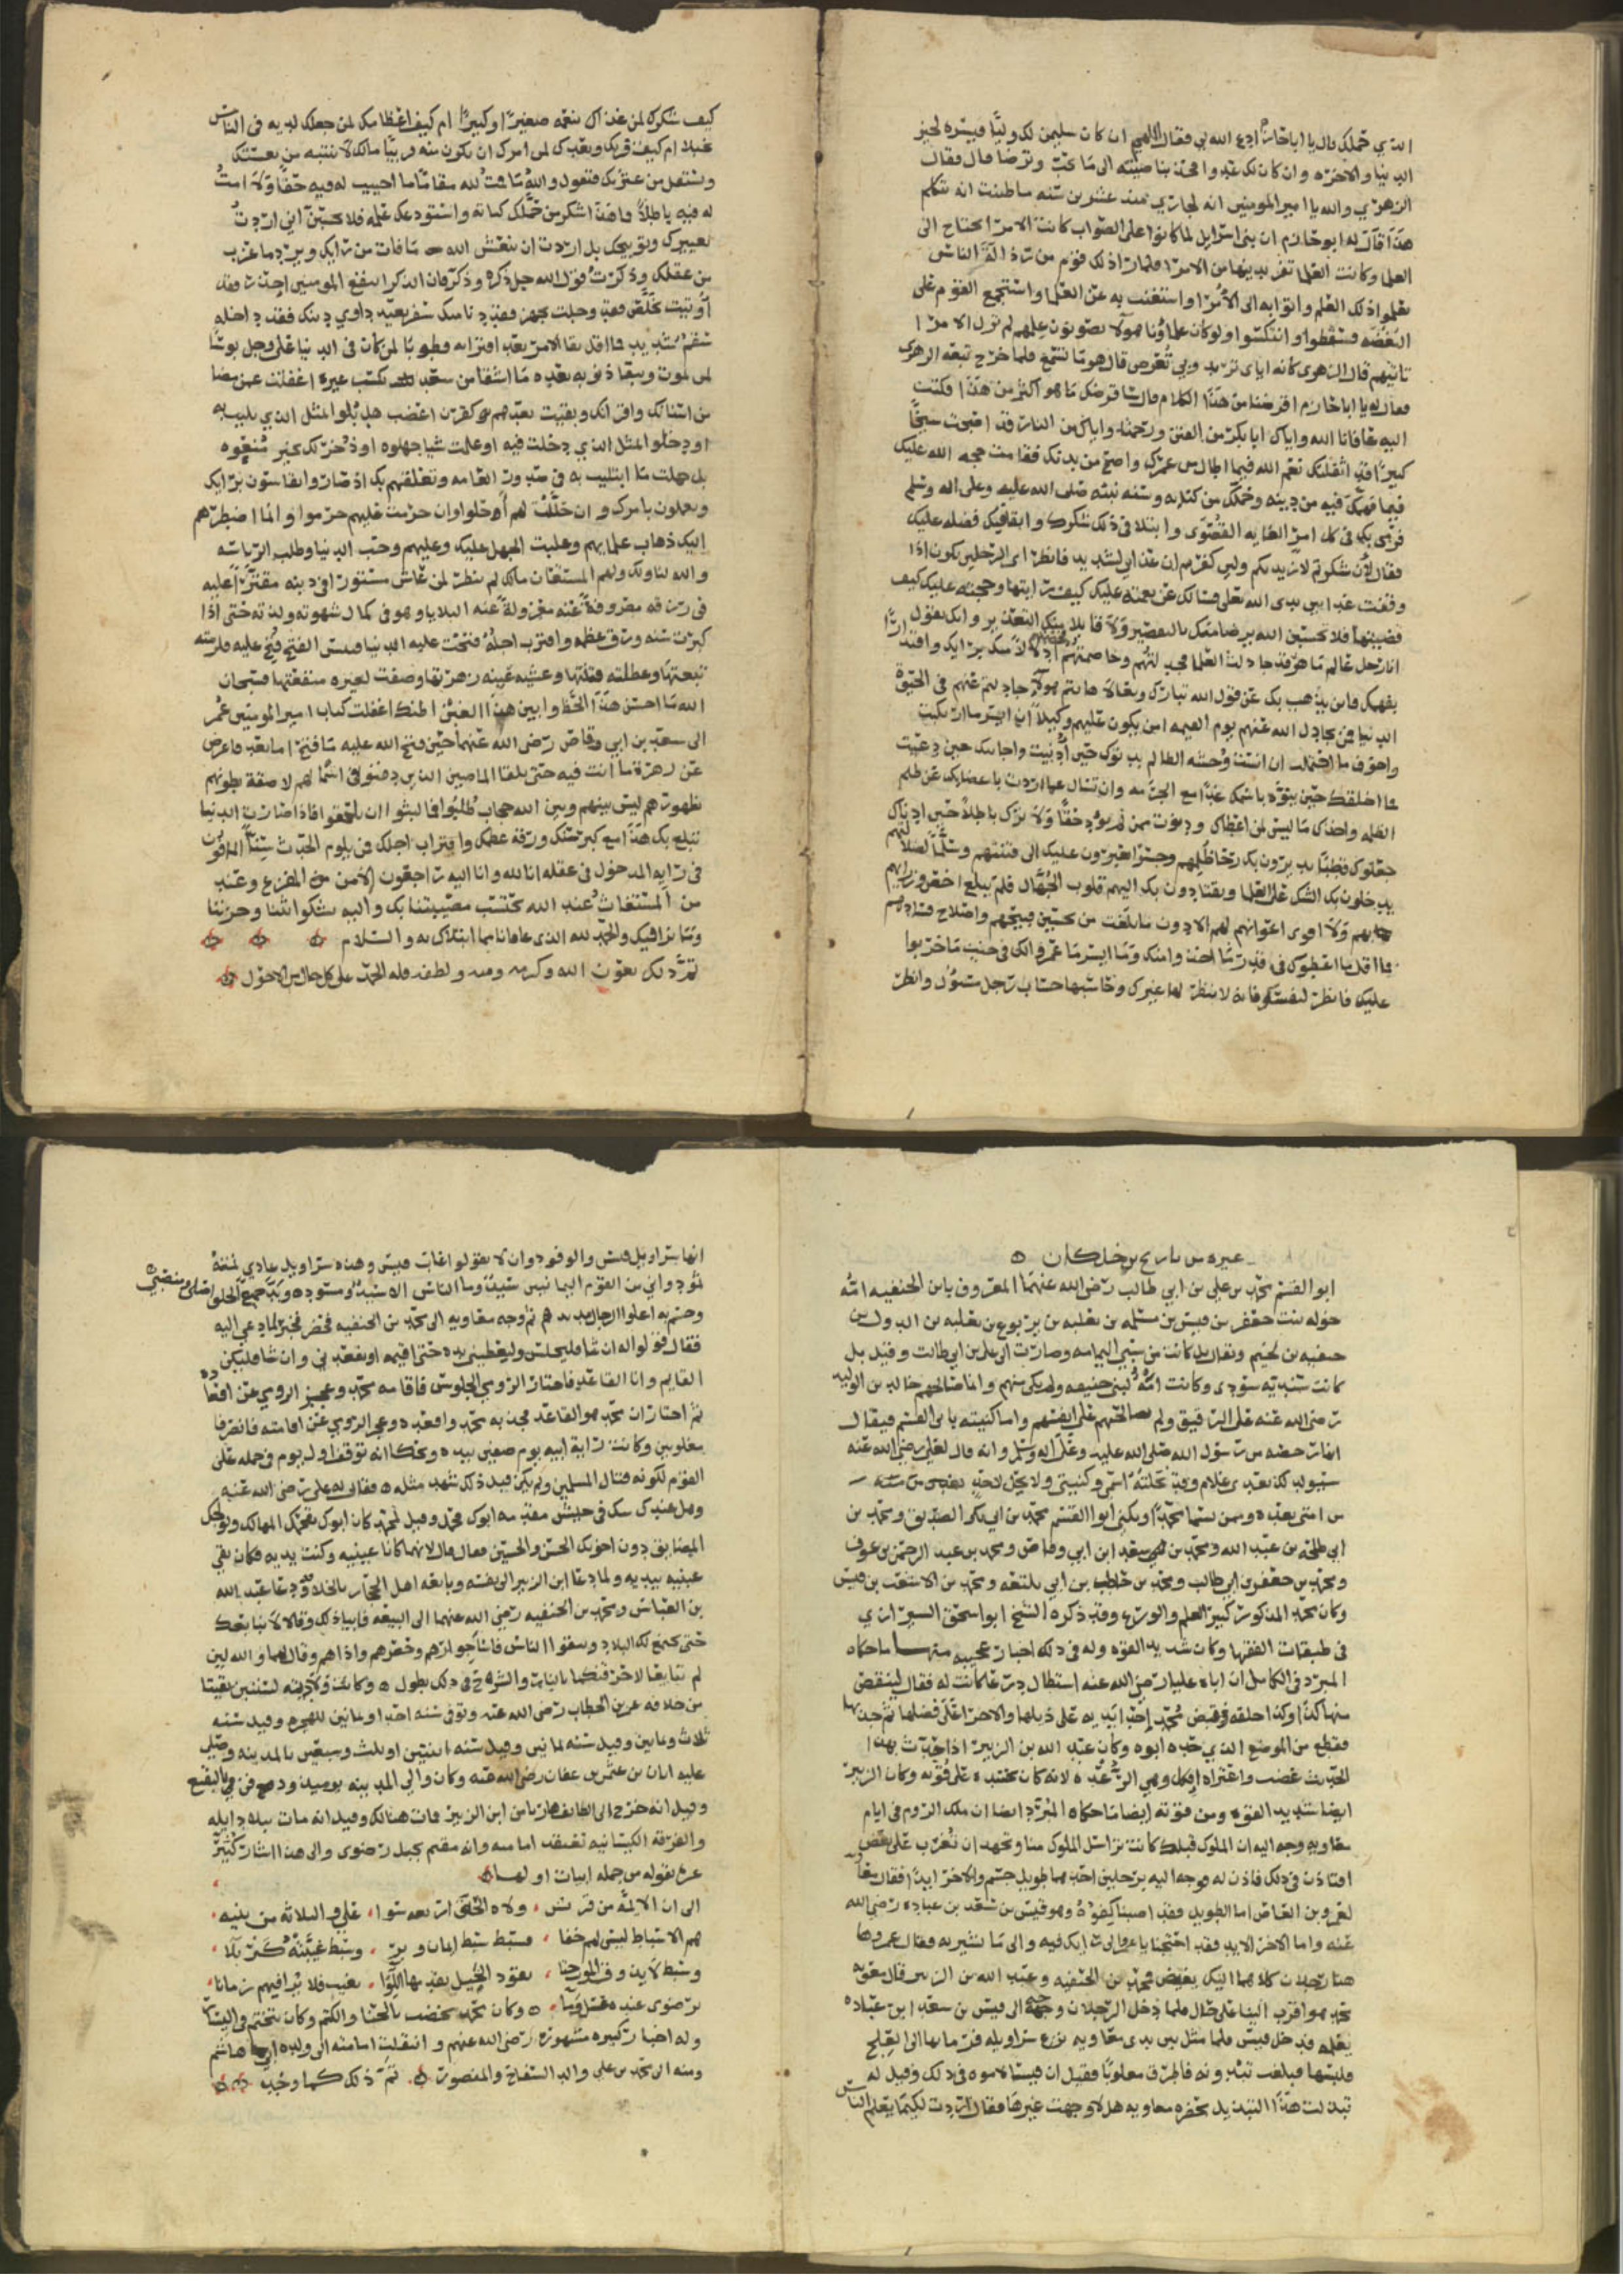 الذي حملك قال يا ابا حازم ادع الله لي فقال اللهم ان كان سليمن لك وليا فيسره لخير
الدنيا والاخره وان كان لك عدوا فخذ بناصيته الى ما تحب وترضا قال فقال
الزهري والله يا امير المومنين انه لجاري منذ عشرين سنه ما ظننت انه يتكلم
هذا قال له ابو حازم ان بني اسرايل لما كانوا على الصواب كانت الامرا تحتاج الى
العلما وكانت العلما تفر بدينها من الامرا فلما راذلك قوم من رذالة الناس
تعلموا ذلك العلم واتوا به الى الامرا واستغنت به عن العلما واستجمع القوم على
المعصيه فسقطوا وانتكسوا ولو كان علماونا هولا يصونون علمهم لم تزل الامرا
تهابهم قال الزهري كانه اياي تريد وبي تعرض قال هو ما تسمع فلما خرج تبعه الزهري
فقال له يا ابا حازم هذا الكلام قال ما هو اكثر من هذا فكتب
اليه عافانا الله واياك ابا بكر من الفتن ورحمنا واياك من النار فقد اصبحت شيخا
كبيرا قد اثقلتك نعم الله فيما اطال من عمرك واصح من بدنك فقامت حجه الله عليك
فيما فهمك فيه من دينه وحملك من كتابه وسنه نبيه صلى الله عليه وعلى اله وسلم
فرمى بك في كل امر الغايه القصوى وابتلا في ذلك شكرك وابقا فيك فضله عليك
فقال لان شكرتم لازيدنكم ولين كفرتم ان عذابي لشديد فانظر اي الرجلين تكون اذا
وقفت غدا بين يدي الله تعلى فسالك عن نعمته عليك كيف رعيتها وحججه عليك كيف
قضيتها فلا تحسبن الله يرضا منك بالتعصير ولا قابلا منك التعذير وانك تقول
انا رجل عالم ماهر قد جادلت العلما فجدلتهم وخاصمتهم فخصمتهم ادلالا منك برايك واقتدارا
بفهمك فاين يذهب بك عن قول الله تبارك وتعالا ها انتم هولا جادلتم عنهم في الحيوة
الدنيا فمن يجادل الله عنهم يوم القيمه امن يكون عليهم وكيلا ان ايسر ما ارتكبت
واخوف ما احتملت ان انست وحشه الظالم بدنوك حين ادنيت واجابتك حين دعيت
فما اخلقك حين ينوه باسمك غدا مع الجرمه وان تسال عما اردت باغضايك عن ظلم
الظلمه واخذك ما ليس لمن اعطاك ودنوت ممن لم يود حقا ولا ترك باطلا حين ادناك
جعلوك قطبا يديرون بك رحا ظلمهم وجسرا يعبرون عليك الى فتنتهم وسلما لضلالتهم
يدخلون بك الشك على العلما ويقتادون بك اليهم قلوب الجهال فلم يبلغ اخص وزرايهم
ولا اقوى اعوانهم لهم الا دون ما بلغت من تحسين قبيحهم واصلاح فسادهم
فما اقل ما اعطوك في قدر ما اخذوا منك وما ايسر ما عمروا لك في جنب ما خربوا
عليك فانظر لنفسك فانه لا ينظر لها غيرك وحاسبها حساب رجل مسوول وانظر
كيف شكرك لمن غذاك بنعمه صغيرا وكبيرا ام كيف اعظامك لمن جعلك لدينه في الناس
مبجلا ام كيف قربك وبعدك لمن امرك ان يكون منه قريبا مالك لا تنتبه من نعستك
وتستقل من عثرتك فتقول والله ما قمت لله مقاما ما احييت له فيه حقا ولا امت
له فيه باطلا فاين شكر من حملك كتابه واستودعك علمه فلا تحسبن اني اردت
تعييرك وتوبيخك بل اردت ان ينعش الله ما فات من رايك ويرد ما عزب
من عقلك وذكرت قول الله جل ذكره وذكر فان الذكرا تنفع المومنين
شغم شديد فما اقل بقا الامر بعد افتراقه وطوبا لمن كان في الدنيا على وجل بوسا
لمن يموت ويبقا ذنوبه بعده ما اشقا من سعد بكسبه غيره اغفلت عمن مضا
من اسنانك واقرانك وبقيت بعدهم هل بلوا المثل الذي بليت به
او دخلوا المثل الذي دخلت فيه او علمت شيا جهلوه او ذخر لك خير منعوه
بل جهلت ما ابتليت به في صدور العامه وتعلقهم بك اذ صاروا يقتدون برايك
ويعملون بامرك وان حللت لهم احلوا وان حرمت عليهم حرموا وانما اضطرهم
اليك ذهاب علمايهم وغلبت الجهل عليك وعليهم وحب الدنيا وطلب الرياسه
كبرت سنه ورق عظمه واقترب اجله فتحت عليه الدنيا
الله ما احسن هذا الخط وابين هذا الغبن اغفلت كتاب امير المومنين عمر
الى سعد بن ابي وقاص رضى الله عنهما حين فتح الله عليه ما فتح اما بعد فاعرض
عن زهرة ما انت فيه حتى تلقا الماضين الذين دفنوا في اسمالهم لاصقة بطونهم
بظهورهم ليس بينهم وبين الله حجاب طلبوا فما لبثوا ان يلحقوا فاذا صارت الدنيا
تبلغ بك هذا مع كبر سنك ورقة عظمك واقتراب اجلك فمن يلوم الحدث سنا المافون
في رايه المدخول في عقله انا لله وانا اليه راجعون الامن المفزع وعند
من المستغاث عند الله نحتسب مصيبتنا بك واليه شكوا بثنا وحزننا
وما نرا فيك والحمد لله الذي عافانا مما ابتلاك به والسلام
تم ذلك بعون الله وكرمه ومنه ولطفه فله الحمد على كل حال من الاحوال
غيره من تاريخ بن خلكان
ابو القسم محمد بن علي بن ابي طالب رضى الله عنهما المعروف بابن الحنفيه امه
خوله بنت جعفر بن قيس بن مسلمه بن ثعلبه بن يربوع بن ثعلبه بن الدول بن
حنفيه بن لجيم ويقال بل كانت من سبي اليمامه وصارت الى علي بن ابي طالب وقيل بل
كانت سنديه سودى وكانت امه لبني حنيفه ولم يكن منهم وانما صالحهم خالد بن الوليد
رضى الله عنه على الرقيق ولم يصالحهم على انفسهم واما كنيته بابي القسم فيقال
انها رخصه من رسول الله صلى الله عليه وعلى اله وسلم وانه قال لعلي رضي الله عنه
سيولد لك بعدي غلام وقد نحلته اسمي وكنيتي ولا يحل لاحد
من امتي بعده وممن يسما محمدا ويكنى ابو القسم محمد بن ابي بكر الصديق ومحمد بن
ابي طلحه بن عبد الله ومحمد بن سعد ابن ابي وقاص ومحمد بن عبد الرحمن بن عوف
ومحمد بن جعفر بن ابي طالب ومحمد بن حاطب بن ابي بلتعه ومحمد بن الاشعث بن قيس
وكان محمد المذكور كبير العلم والورع وقد ذكره الشيخ ابو اسحق السيرازي
في طبقات الفقها وكان شديد القوه وله في ذلك اخبار عجيبه منها ما حكاه
المبرد في الكامل ان اباه عليا رضي الله عنه استطال درعا كانت له فقال لينقص
منها كذا وكذا حلقه فقبض محمد احدا يديه على ذيلها والاخرا على فضلها ثم جذبها
فقطع من الموضع الذي حده ابوه وكان عبد الله بن الزبير اذا حدث بهذا
الحديث غضب واعتراه افكل وهي الرعده لانه كان يحسده على قوته وكان الزبير
ايضا شديد القوه ومن قوته ايضا ما حكاه المبرد ايضا ان ملك الروم في ايام
معاويه وجه اليه ان الملوك قبلك كانت تراسل الملوك منا وتجهد ان تغرب على بعض
افتاذن في ذلك فاذن له فوجه اليه برجلين احدهما طويل جسم والاخر ايد فقال معاويه
لعمرو بن العاص اما الطويل فقد اصبنا كفوه وهو قيس بن سعد بن عباده رضي الله
عنه واما الاخر الايد فقد احتجنا الى رايك فيه والى ما تشير به فقال عمرو ها
هنا رجلان كلاهما اليك بغيض محمد بن الحنفيه وعبد الله بن الزبير قال معويه
محمد هو اقرب الينا على حال فلما دخل الرجلان وجه الى قيس بن سعد ابن عباده
يعلمه فدخل قيس فلما مثل بين يدي معاويه نزع سراويله فرما بها الى العلج
فلبسها فبلغت ثندوته فاطرق مغلوبا فقيل ان قيسا لاموه في ذلك وقيل له
تبذلت هذا التبذيل بحضره معاويه هلا وجهت غيرها فقال اردت لكيما يعلم الناس
انها سراويل قيس والوفود وان لا يقولوا غاب قيس وهذه سراويل عادي نمته
ثمود واني من القوم اليمانيين سيد وما الناس الا سيد ومسود وبد جميع الخلق اصلي ومنصبي
وجسم به اعلوا الرجال مديد ثم وجه معاويه الى محمد بن الحنفيه فحضر فخبر بما دعي اليه
فقال قولوا له ان شا فليجلس وليعطيني يده حتى اقيمه او يقعدني وان شا فليكن
القايم وانا القاعد فاختار الرومي الجلوس فاقامه محمد وعجز الرومي عن اقعاده
ثم اختار ان محمد هو القاعد فجذبه محمد واقعده وعجز الرومي عن اقامته فانصرفا
مغلوبين وكانت راية ابيه يوم صفين بيده ويحكا انه توقف اول يوم في حمله على
القوم لكونه قتال المسلمين ولم يكن قبل ذلك شهد مثله فقال له علي رضى الله عنه
وهل عندك شك في جيش مقدمه ابوك فحمل وقيل لمحمد كان ابوك يقحمك المهالك ويولجك
المضايق دون اخويك الحسن والحسين فقال لانهما كانا عينيه وكنت يديه فكان يقي
عينيه بيديه ولما دعا ابن الزبير الى نفسه وبايعه اهل الحجاز بالخلافه دعا عبد الله
بن العباس ومحمد بن الحنفيه رضي الله عنهما الى البيعه فابيا ذلك وقالا لا نبايعك
حتى تجتمع لك البلاد ويتفقوا الناس فاسا جوارهم وحصرهم واذاهم وقال لهما والله لين
لم تبايعا لاحرقنكما بالنار والشرح في ذلك يطول وكانت ولادته لسنتين بقيتا
من خلافه عمر بن الخطاب رضى الله عنه وتوفي سنه احدا وثمانين للهجره وقيل سنه
ثلاث وثمانين وقيل سنه ثمانين وقيل سنه اثنتين او ثلث وسبعين بالمدينه وصلى
عليه ابان بن عثمن بن عفان رضى الله عنه وكان والي المدينه يوميذ ودفن في البقيع
وقيل انه خرج الى الطايف هاربا من ابن الزبير فمات هنالك وقيل انه مات ببلاد ايله
والفرقه الكيسانيه تعتقد امامته وانه مقيم بجبل رضوى والى هذا اشار كثير
عزه بقوله من جمله ابيات اولها
الى ان الايمه من قريش ولاه الحق اربعه سوا علي والثلاثه من بنيه
هم الاسباط ليس لهم خفا فسبط سبط ايمان وبر وسبط غيبته كربلا
وسبط لا يذوق الموت حتا يقود الخيل يقدمها اللوا يغيب فلا يرا فيهم زمانا
برضوى عنده عسل وما وكان محمد يخضب بالحنا والكتم وكان يتختم في اليسار
وله اخبار كبيره مشهوره رضى الله عنهم وانتقلت امامته الى ولده ابي هاشم
ومنه الى محمد بن علي والد السفاح والمنصور تم ذلك كما وجد